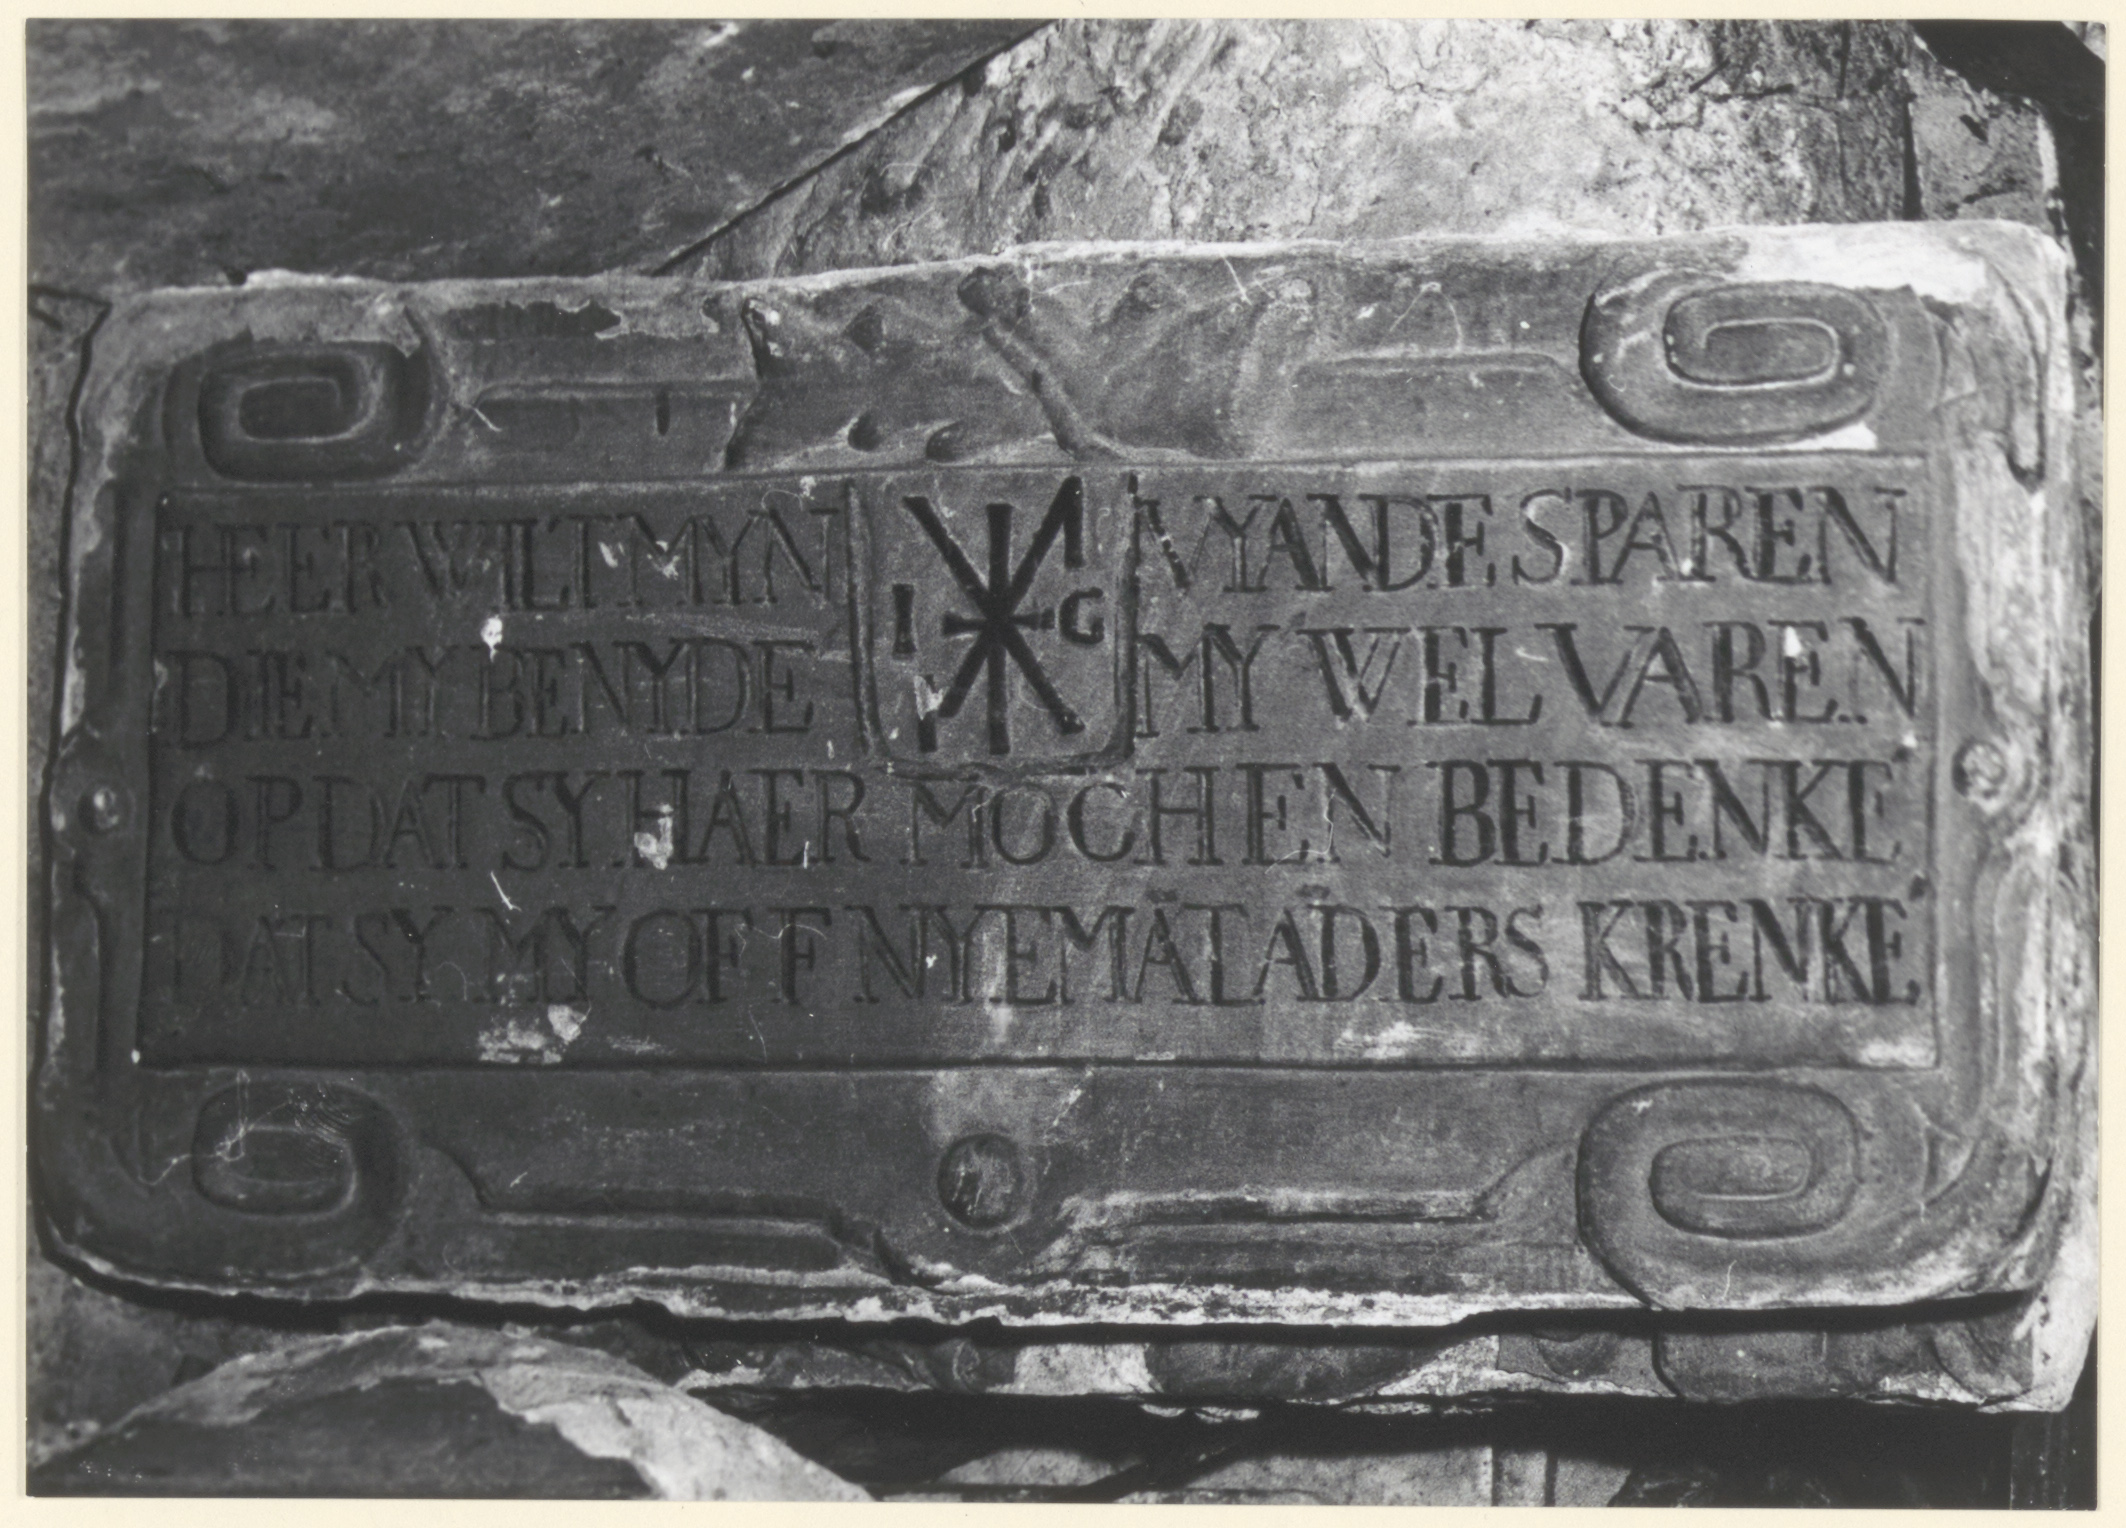 HEER WILT MYN VYANDE SPAREN
I G
DIE MY BENYDE MY WELVAREN
OPDAT SY HAER MOCHEN BEDENKE'
DAT SY MY OFF NYEMÄT ÄDERS KRENKE'